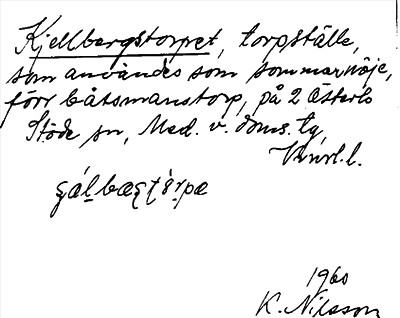 Kjellbergstorpet, torpställe,
som användes som sommarnöje,
förr båtsmanstorp, på 2 Österlo
Stöde sn, Med. v. doms. tg,
l.
1960
K. Nilsson